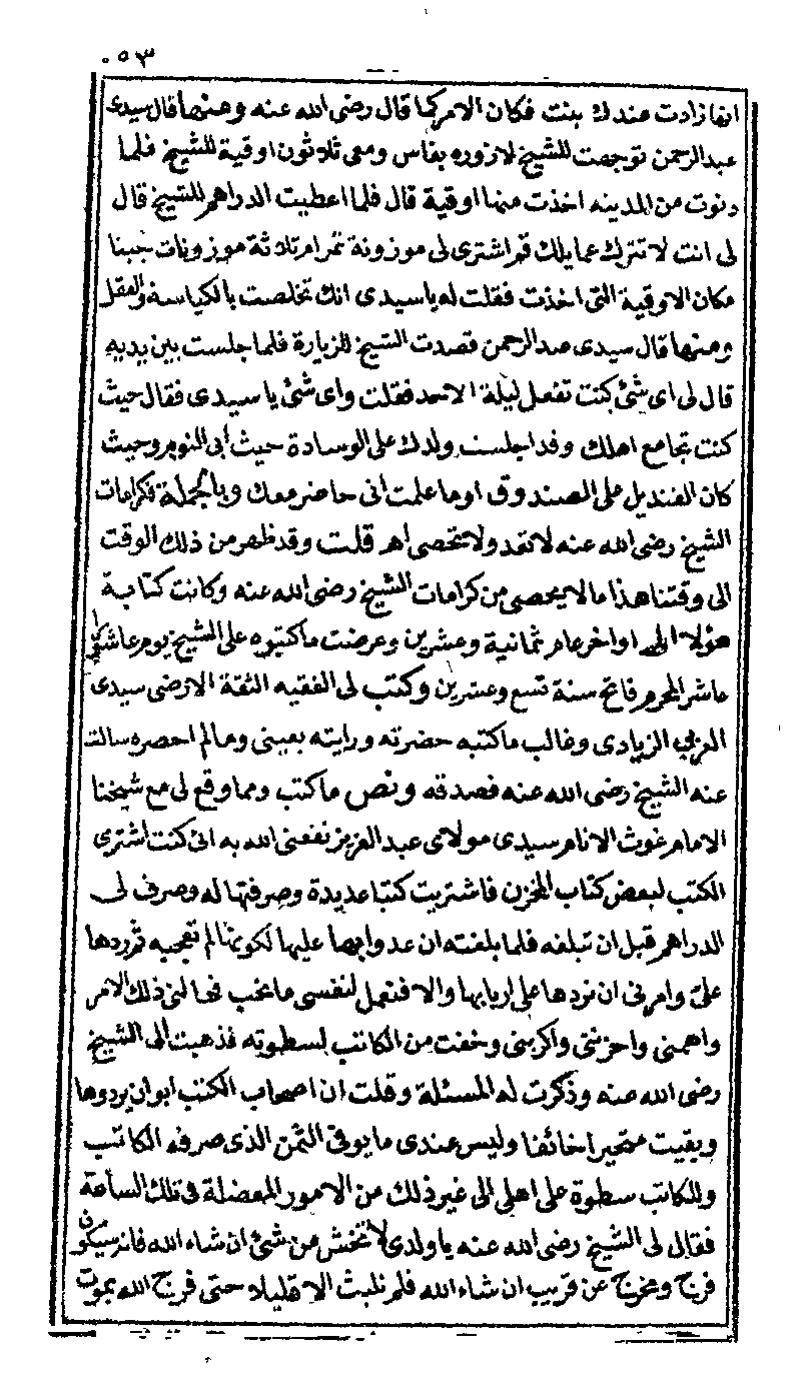 ٥٣
انها زادت عندك بنت فكان الامر كما قال رضى الله عنه ومنها قال سيدى
عبد الرحمن توجهت للشيخ لازوره بفاس ومعى ثلاثون اوقية للشيخ فلما
دنوت من المدينه اخذت منها اوقية قال فلما اعطيت الدراهم للشيخ قال
لى انت لا تترك عمايلك قم اشترى لى موزونة تمرا مع ثلاثة موزونات جبنا
مكان الاوقية التى اخذت فقلت له يا سيدى انك تخلصت بالكياسة والعقل
ومنها قال سيدى عبد الرحمن قصدت الشيخ للزيارة فلما جلست بين يديه
قال لى اى شئ كنت تفعل ليلة الاحد فقلت واى شئ يا سيدى فقال حيث
كنت تجامع اهلك وقد اجلست ولدك على الوسادة حيث أبى النوم وحيث
كان القنديل على الصندوق اوما علمت انى حاضر معك وبالجملة فكرامات
الشيخ رضى الله عنه لا تعد ولا تحصى اهـ قلت وقد ظهر من ذلك الوقت
الى وقتنا هذا ما لا يحصى من كرامات الشيخ رضى الله عنه وكانت كتابة
هؤلاء اواخر عام ثمانية وعشرين وعرضت ما كتبوه على الشيخ يوم عاشوراء
عاشر المحرم فاتح سنة تسع وعشرين وكتب لى الفقيه الثقة الارضى سيدى
العربى الزيادى وغالب ما كتبه حضرته ورايته بعينى وما لم احضره سالت
عنه الشيخ رضى الله عنه فصدقه ونص ما كتب ومما وقع لى مع شيخنا
الامام غوث الانام سيدى مولاى عبد العزيز نفعنى الله به انى كنت اشترى
الكتب لبعض كتاب المخزن فاشتريت كتبا عديدة وصرفتها له وصرف لى
الدراهم قبل ان تبلغه فلما بلغته ان عدوا بها عليها لكونها لم تعجبه ثم ردها
على وامرنى ان نردها على اربابها والا فنعمل لنفسى ما يجب فهالنى ذلك الامر
واهمنى واحزننى واكربنى وخفت من الكاتب لسطوته فذهبت الى الشيخ
رضى الله عنه وذكرت له المسئلة وقلت ان اصحاب الكتب ابوا ان يردوها
وبقيت متحيرا خائفا وليس عندى ما يوفى الثمن الذى صرفه الكاتب
وللكاتب سطوة على اهلى الى غير ذلك من الامور المعضلة فى تلك الساعة
فقال لى الشيخ رضى الله عنه يا ولدى لا تخش من شئ ان شاء الله فانه سيكون
فرج ومخرج عن قريب ان شاء الله فلم نلبث الا قليلا حتى فرج الله بموت